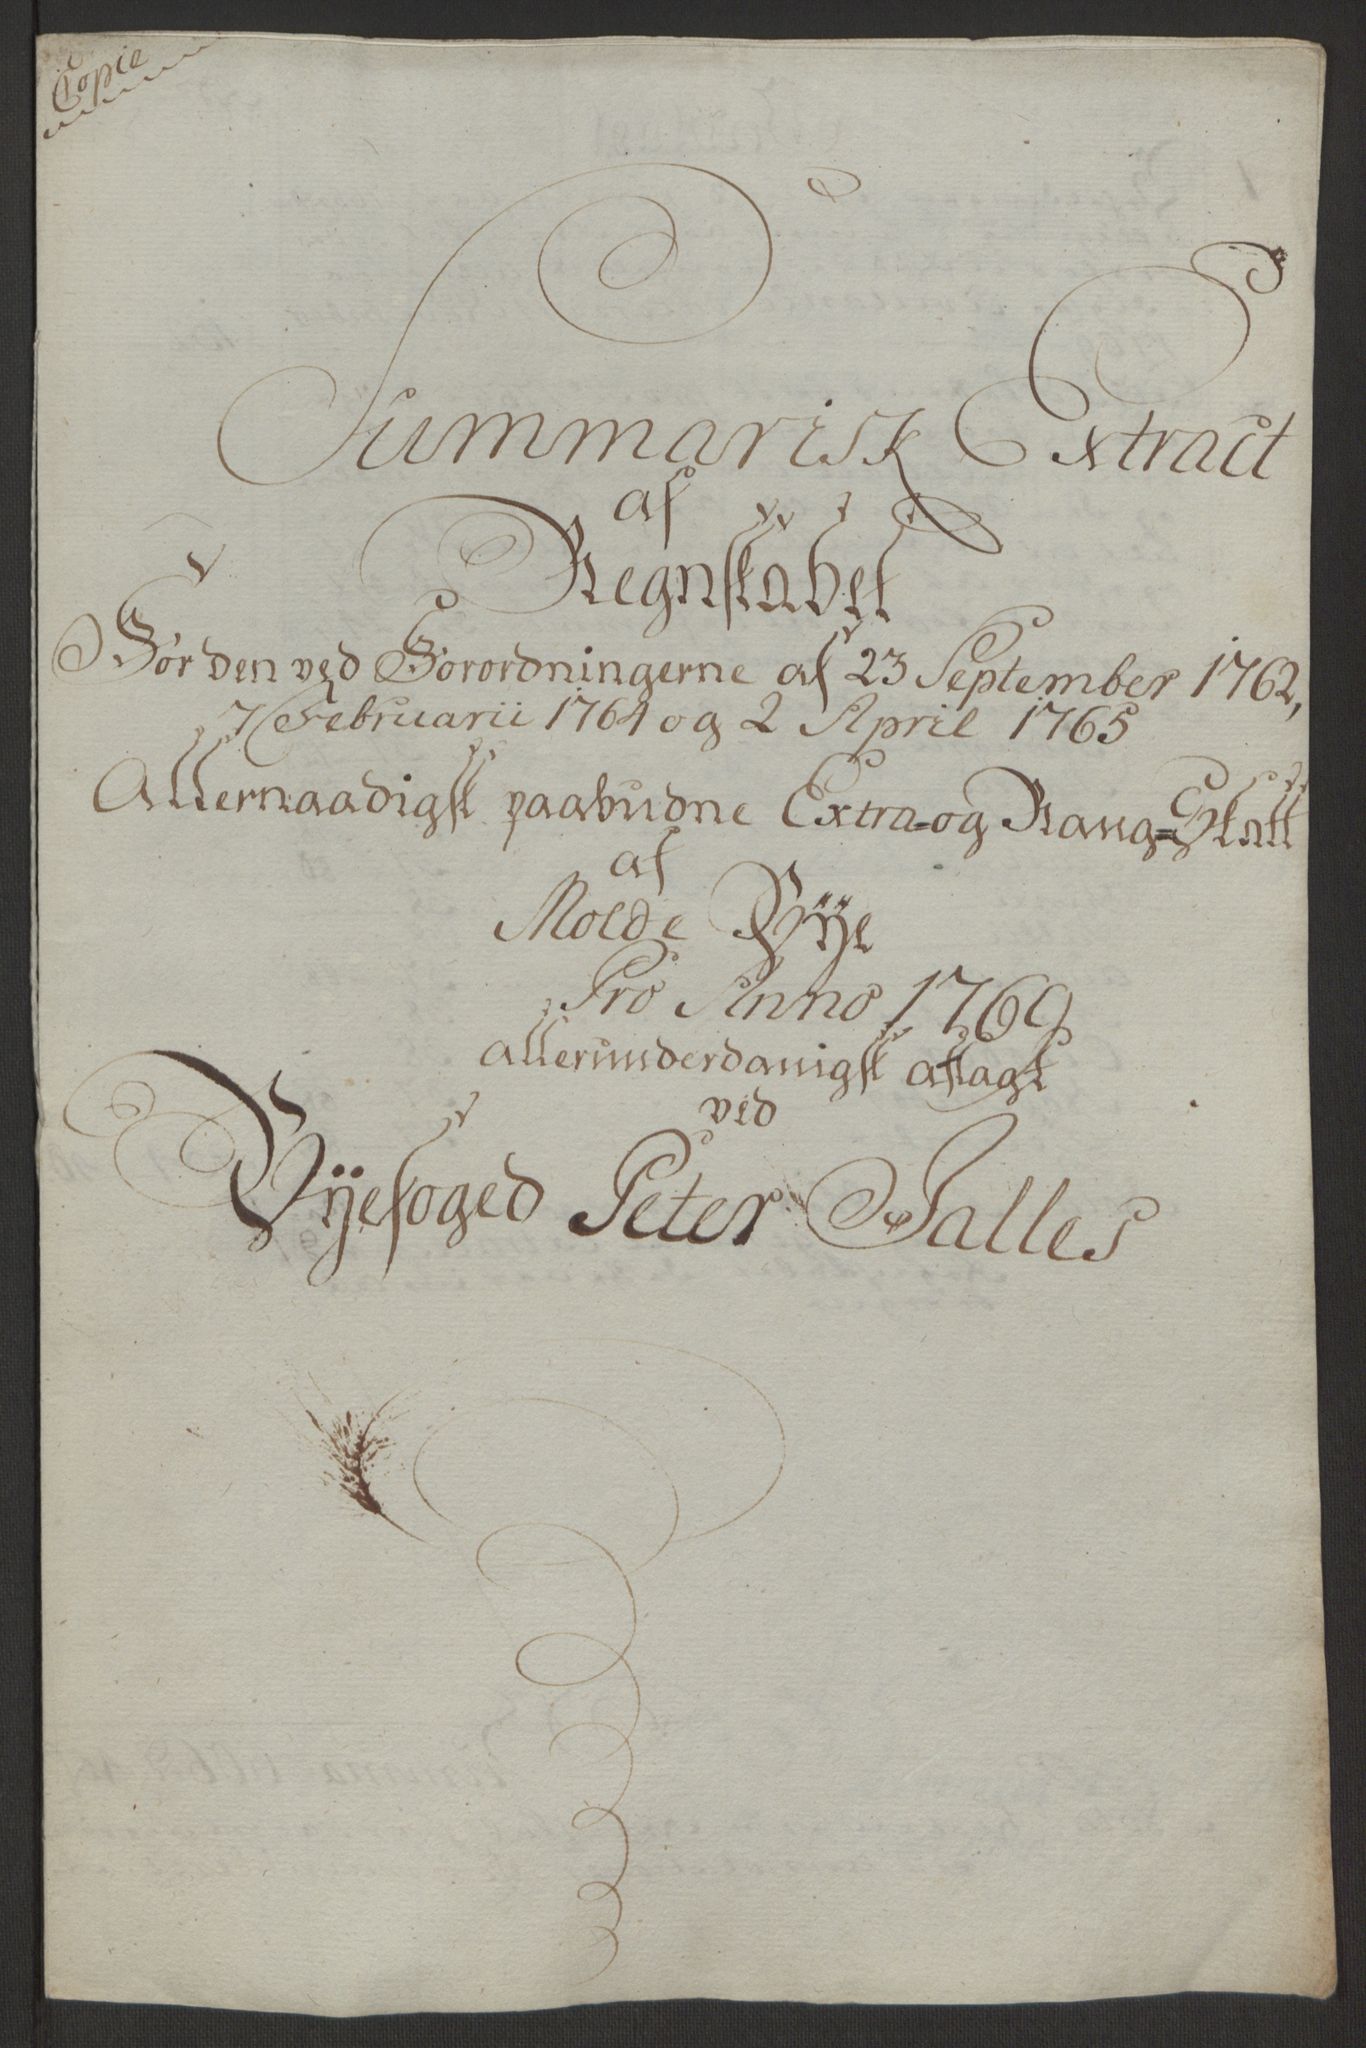 Copie
Summarisk Extract
af
Regnskabet
For den ved Forordningerne af 23 September 1762,
7 Februarii 1764 og 2 April 1765
Allernaadigst paabudne Extra- og Rang-Skatt
af
Molde Bÿe
Pro Anno 1769
allerunderdanigst aflagt
ved
Bÿefoged Peter Dalles